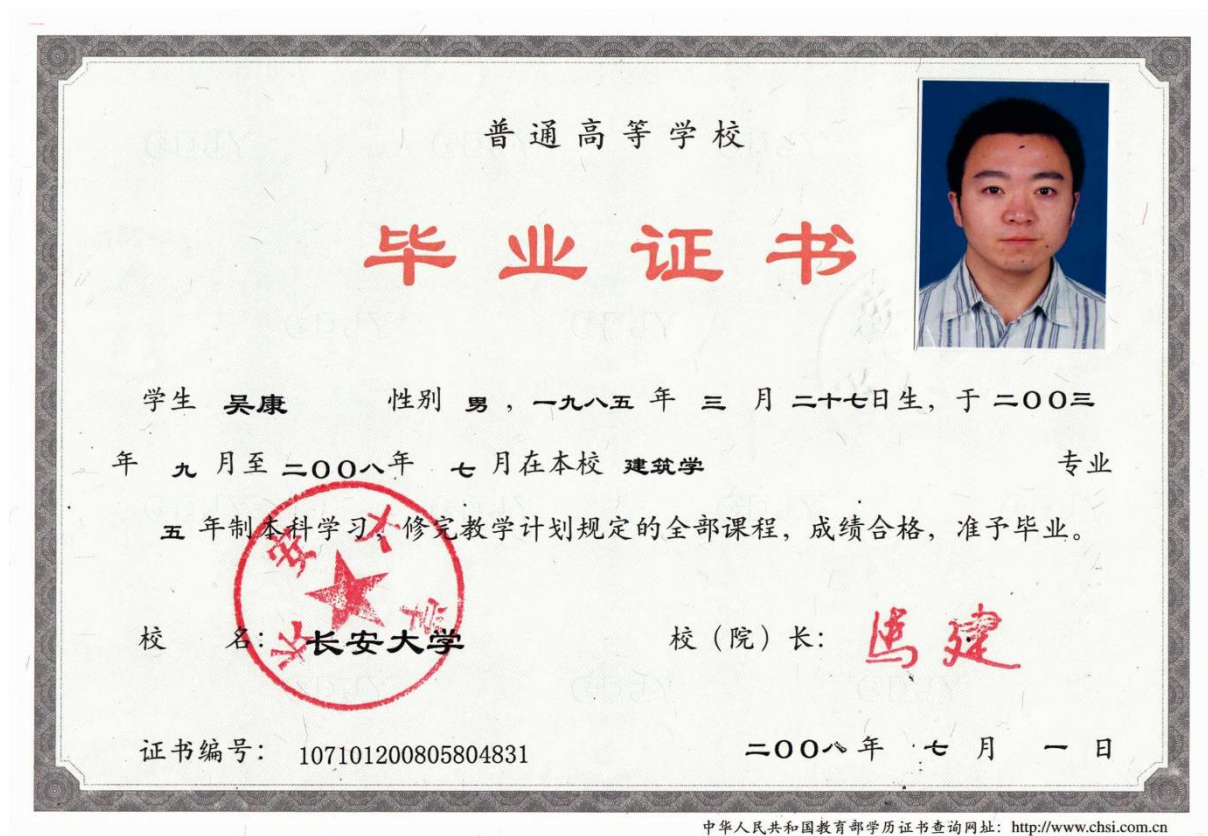 普通高等学校
毕业证书
学生 吴康 性别 男，一九八五 年 三 月 二十七日生，于 二00三
年 九 月至 二00八年 七 月在本校 建筑学 专业
五 年制本科学习，修完教学计划规定的全部课程，成绩合格，准予毕业。
校 名：长安大学 校（院）长：马建
长安大学
证书编号：107101200805804831 二00八 年 七 月 一 日
中华人民共和国教育部学历证书查询网址：http://www.chsi.com.cn